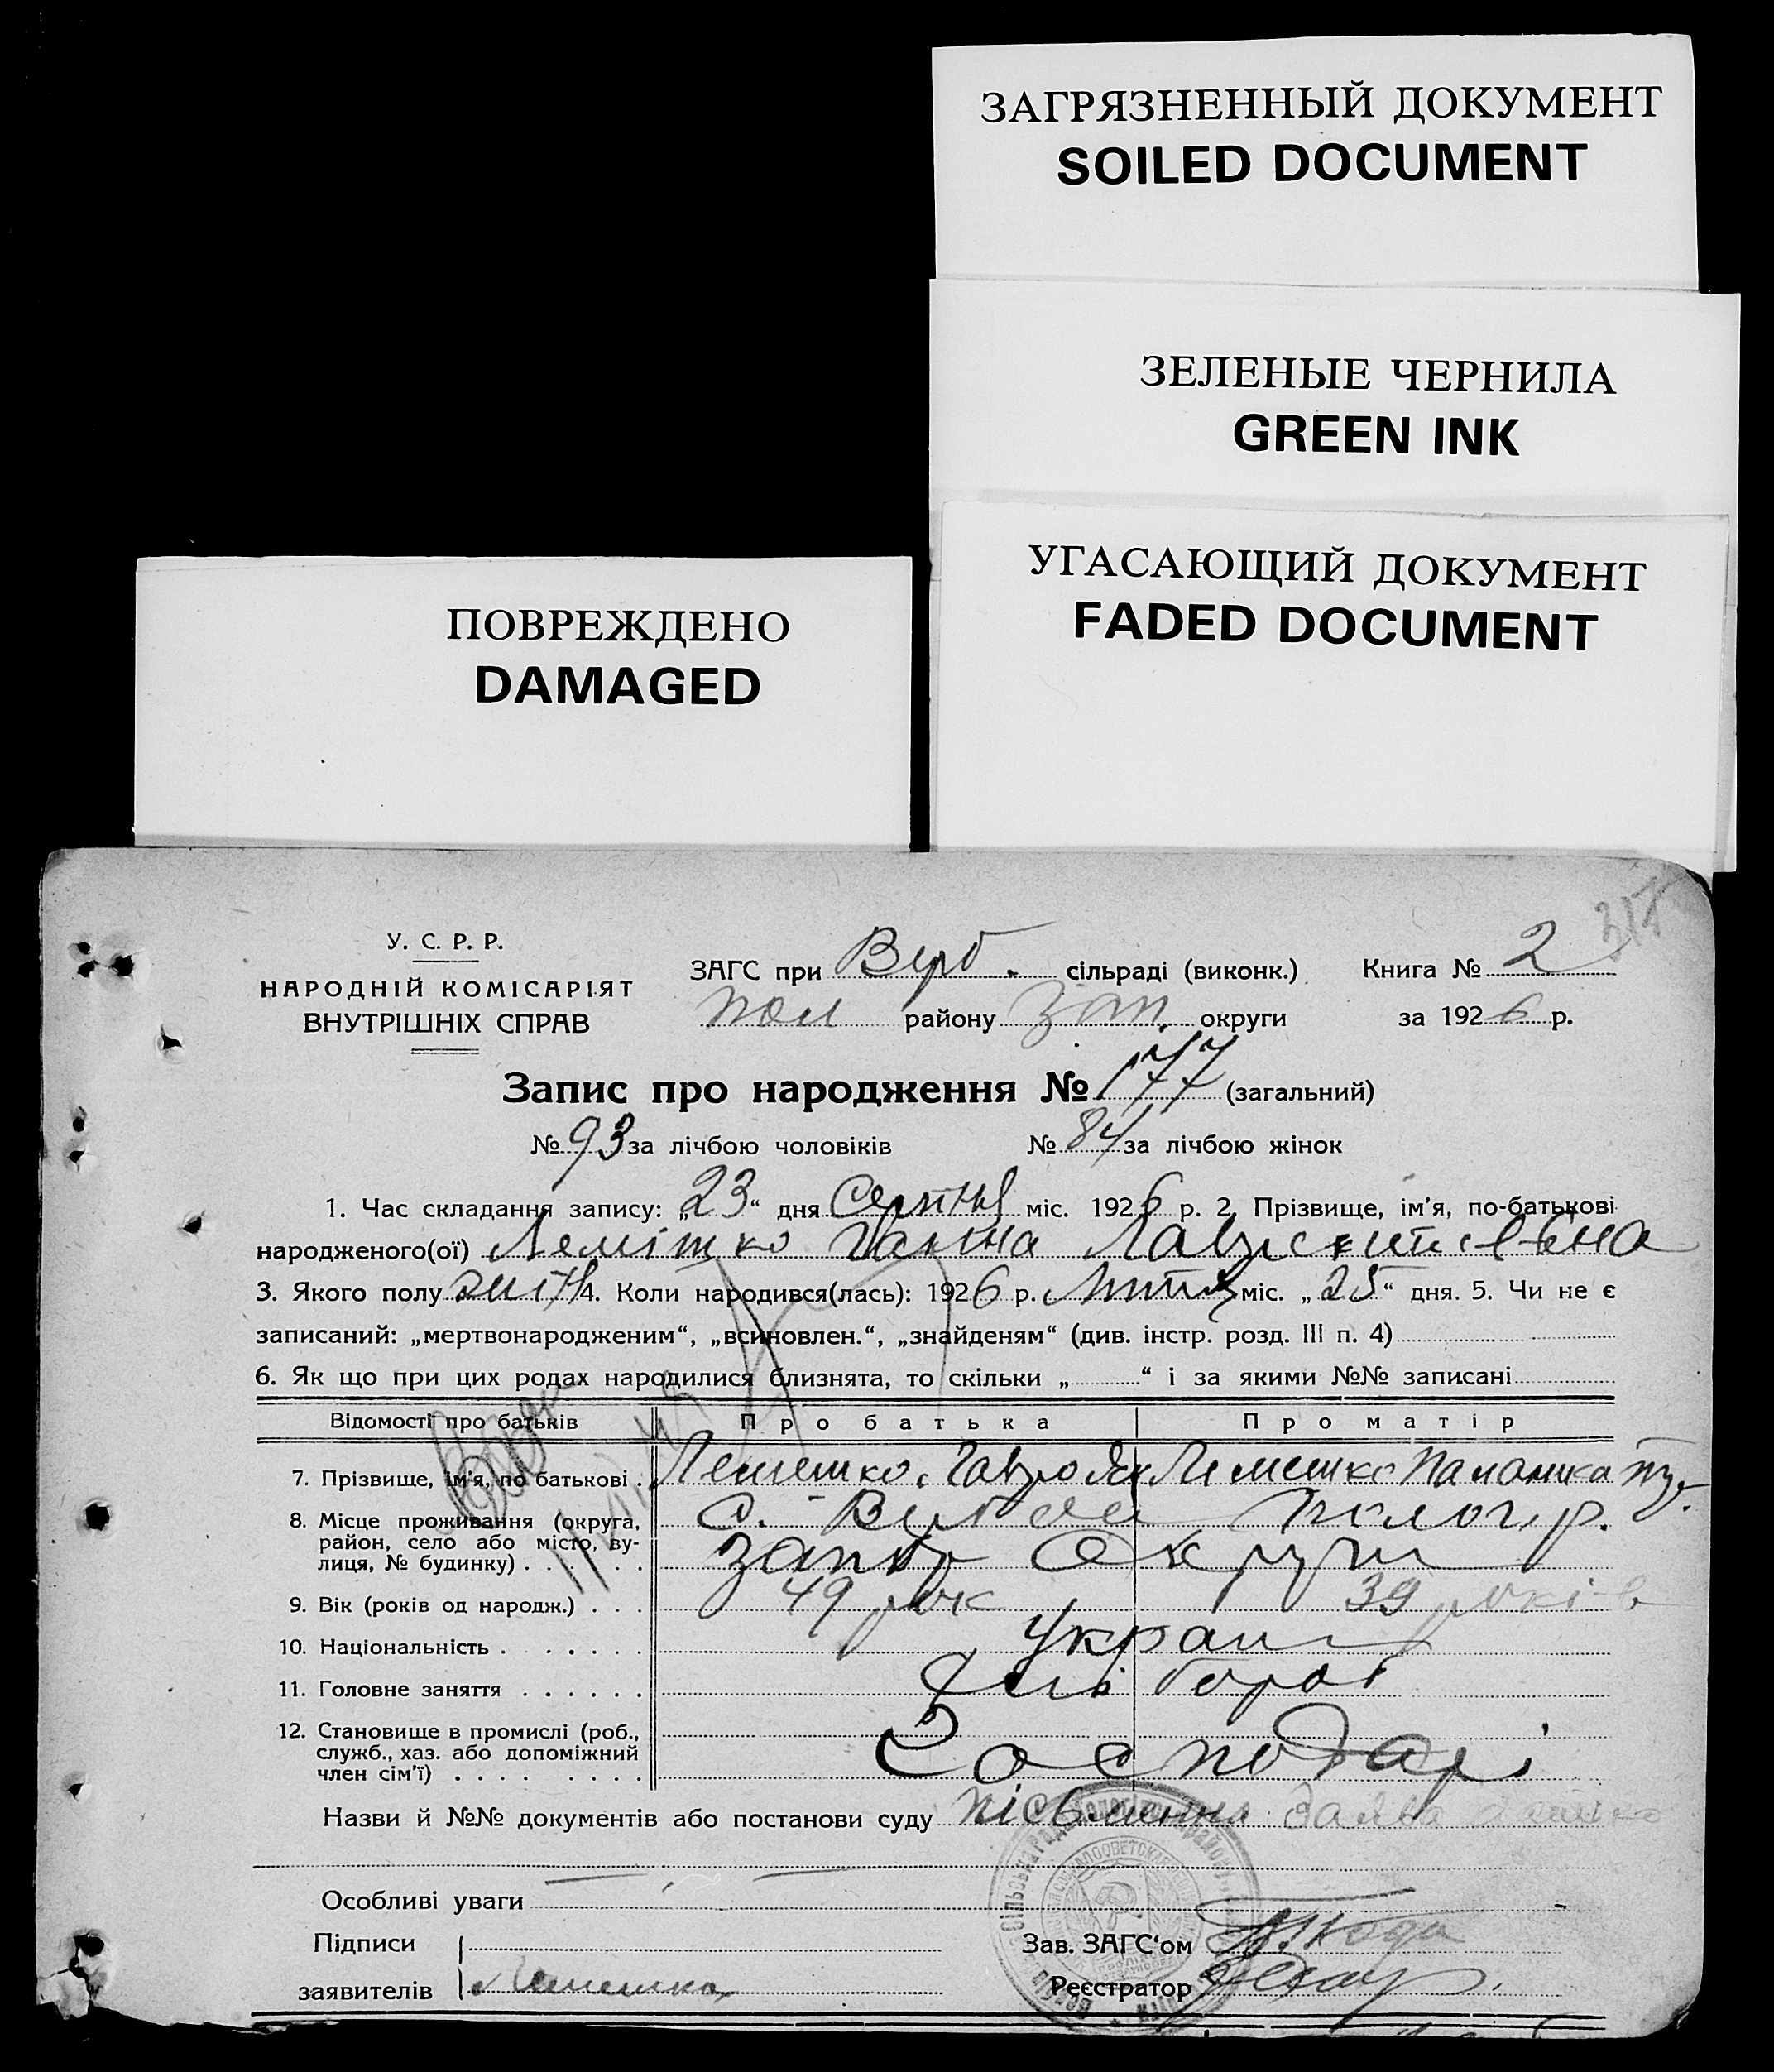 ЗАГРЯЗНЕННЫЙ ДОКУМЕНТ
SOILED DOCUMENT
ЗЕЛЕНЫЕ ЧЕРНИЛА
GREEN INK
УГАСАЮЩИЙ ДОКУМЕНТ
FADED DOCUMENT
ПОВРЕЖДЕНО
DAMAGED
У. С. Р. Р.
НАРОДНІЙ КОМІСАРІЯТ
ВНУТРІШНІХ СПРАВ
ЗАГС при Верб. сільраді (виконк.) Книга № 2
пол району зап. округи за 1926 р.
Запис про народження № 177 (загальний)
№ 93 за лічбою чоловіків № 84 за лічбою жінок
1. Час складання запису: „23“ дня Серпня міс. 1926 р. 2. Прізвище, ім'я, по-батькові
народженого(ої) Лемішко Ганна
3. Якого полу 4. Коли народився(лась): 1926 р. міс. „25“ дня. 5. Чи не є
записаний: „мертвонародженим“, „всиновлен.“, „знайденям“ (див. інстр. розд. III п. 4)
6. Як що при цих родах народилися близнята, то скільки „ “ і за якими №№ записані
Відомості про батьків Про батька Про матір
7. Прізвище, ім'я, по батькові . Лемешко Лемешко
8. Місце проживання (округа, с. Полог. р.
район, село або місто, ву- Округи
лиця, № будинку) . . . . .
9. Вік (років од народж.) . . . 49 рок 39 років
10. Національність . . . . . . Украін
11. Головне заняття . . . . . .
12. Становище в промислі (роб.,
служб., хаз. або допоміжний Господарі
член сім'ї) . . . . . . . .
Назви й №№ документів або постанови суду Пісьменна
Особливі уваги
Підписи Зав. ЗАГС'ом
заявителів Лемешко Реєстратор